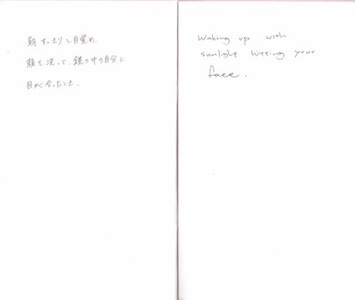 朝すっきりと目覚め、
顔を洗って、鏡の中の自分と
目が合ったとき。
Waking up with
sunlight hitting your
face.